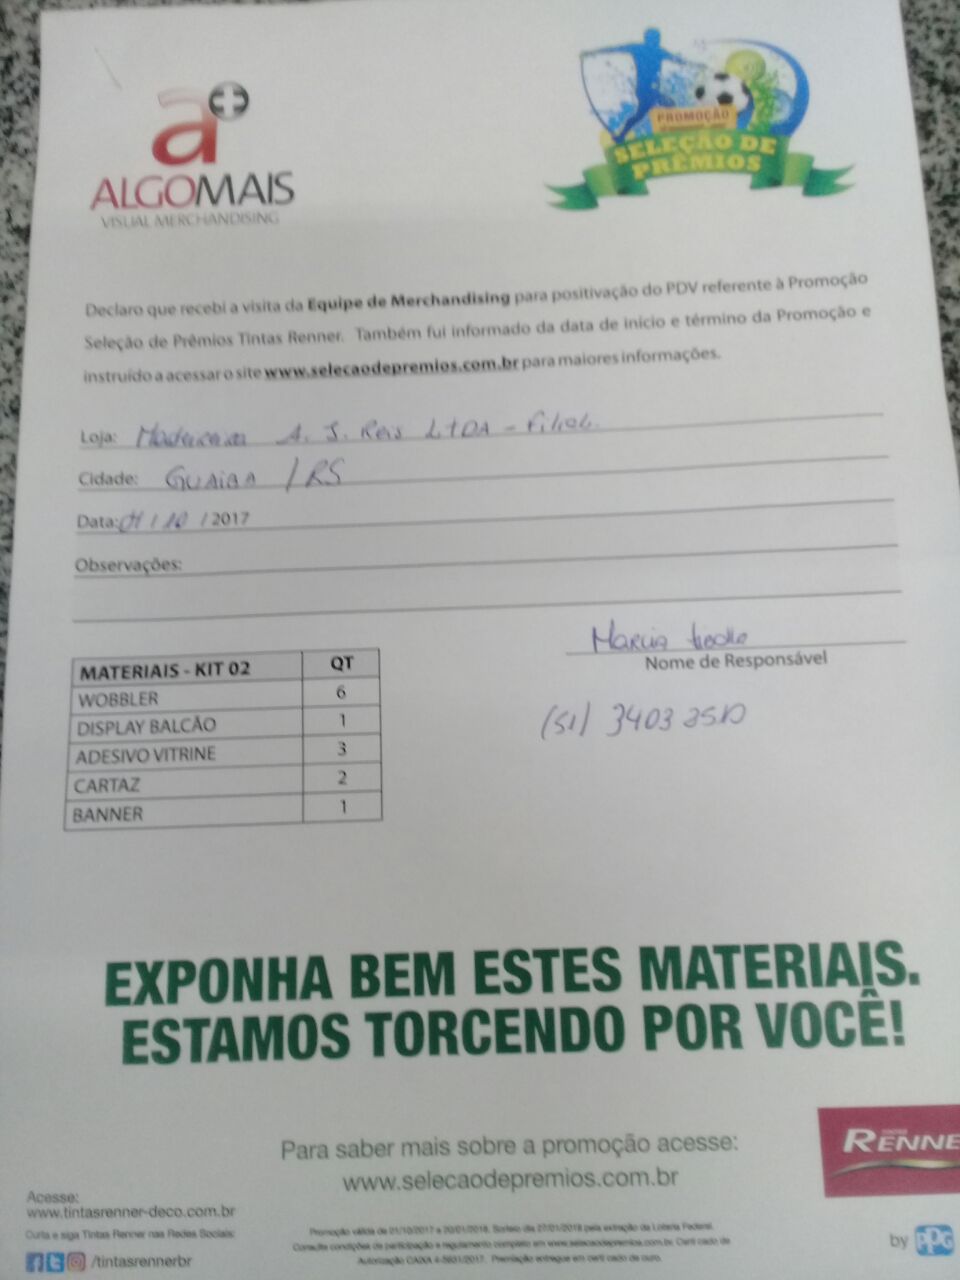 a+
ALGOMAIS
VISUAL MERCHANDISING
PROMOÇÃO
SELEÇÃO DE
PRÊMIOS
Declaro que recebi a visita da Equipe de Merchandising para positivação do PDV referente à Promoção
Seleção de Prêmios Tintas Renner. Também fui informado da data de início e término da Promoção e
instruído a acessar o site www.selecaodepremios.com.br para maiores informações.
Loja: Madeireira A. J. Reis LTDA - Filial
Cidade: GUAIBA / RS
Data: / 10 / 2017
Observações:
Marcia
Nome de Responsável
(51) 3403
MATERIAIS - KIT 02 QT
WOBBLER 6
DISPLAY BALCÃO 1
ADESIVO VITRINE 3
CARTAZ 2
BANNER 1
EXPONHA BEM ESTES MATERIAIS.
ESTAMOS TORCENDO POR VOCÊ!
Para saber mais sobre a promoção acesse:
www.selecaodepremios.com.br
TINTAS
RENNE
Acesse:
www.tintasrenner-deco.com.br
Curta e siga Tintas Renner nas Redes Sociais:
/tintasrennerbr
Promoção válida de 01/10/2017 a 20/01/2018. Sorteio dia 27/01/2018 pela extração da Loteria Federal.
Consulte condições de participação e regulamento completo em www.selecaodepremios.com.br. Certificado de
Autorização CAIXA 4-5931/2017. Premiação entregue em certificado de ouro.
by PPG